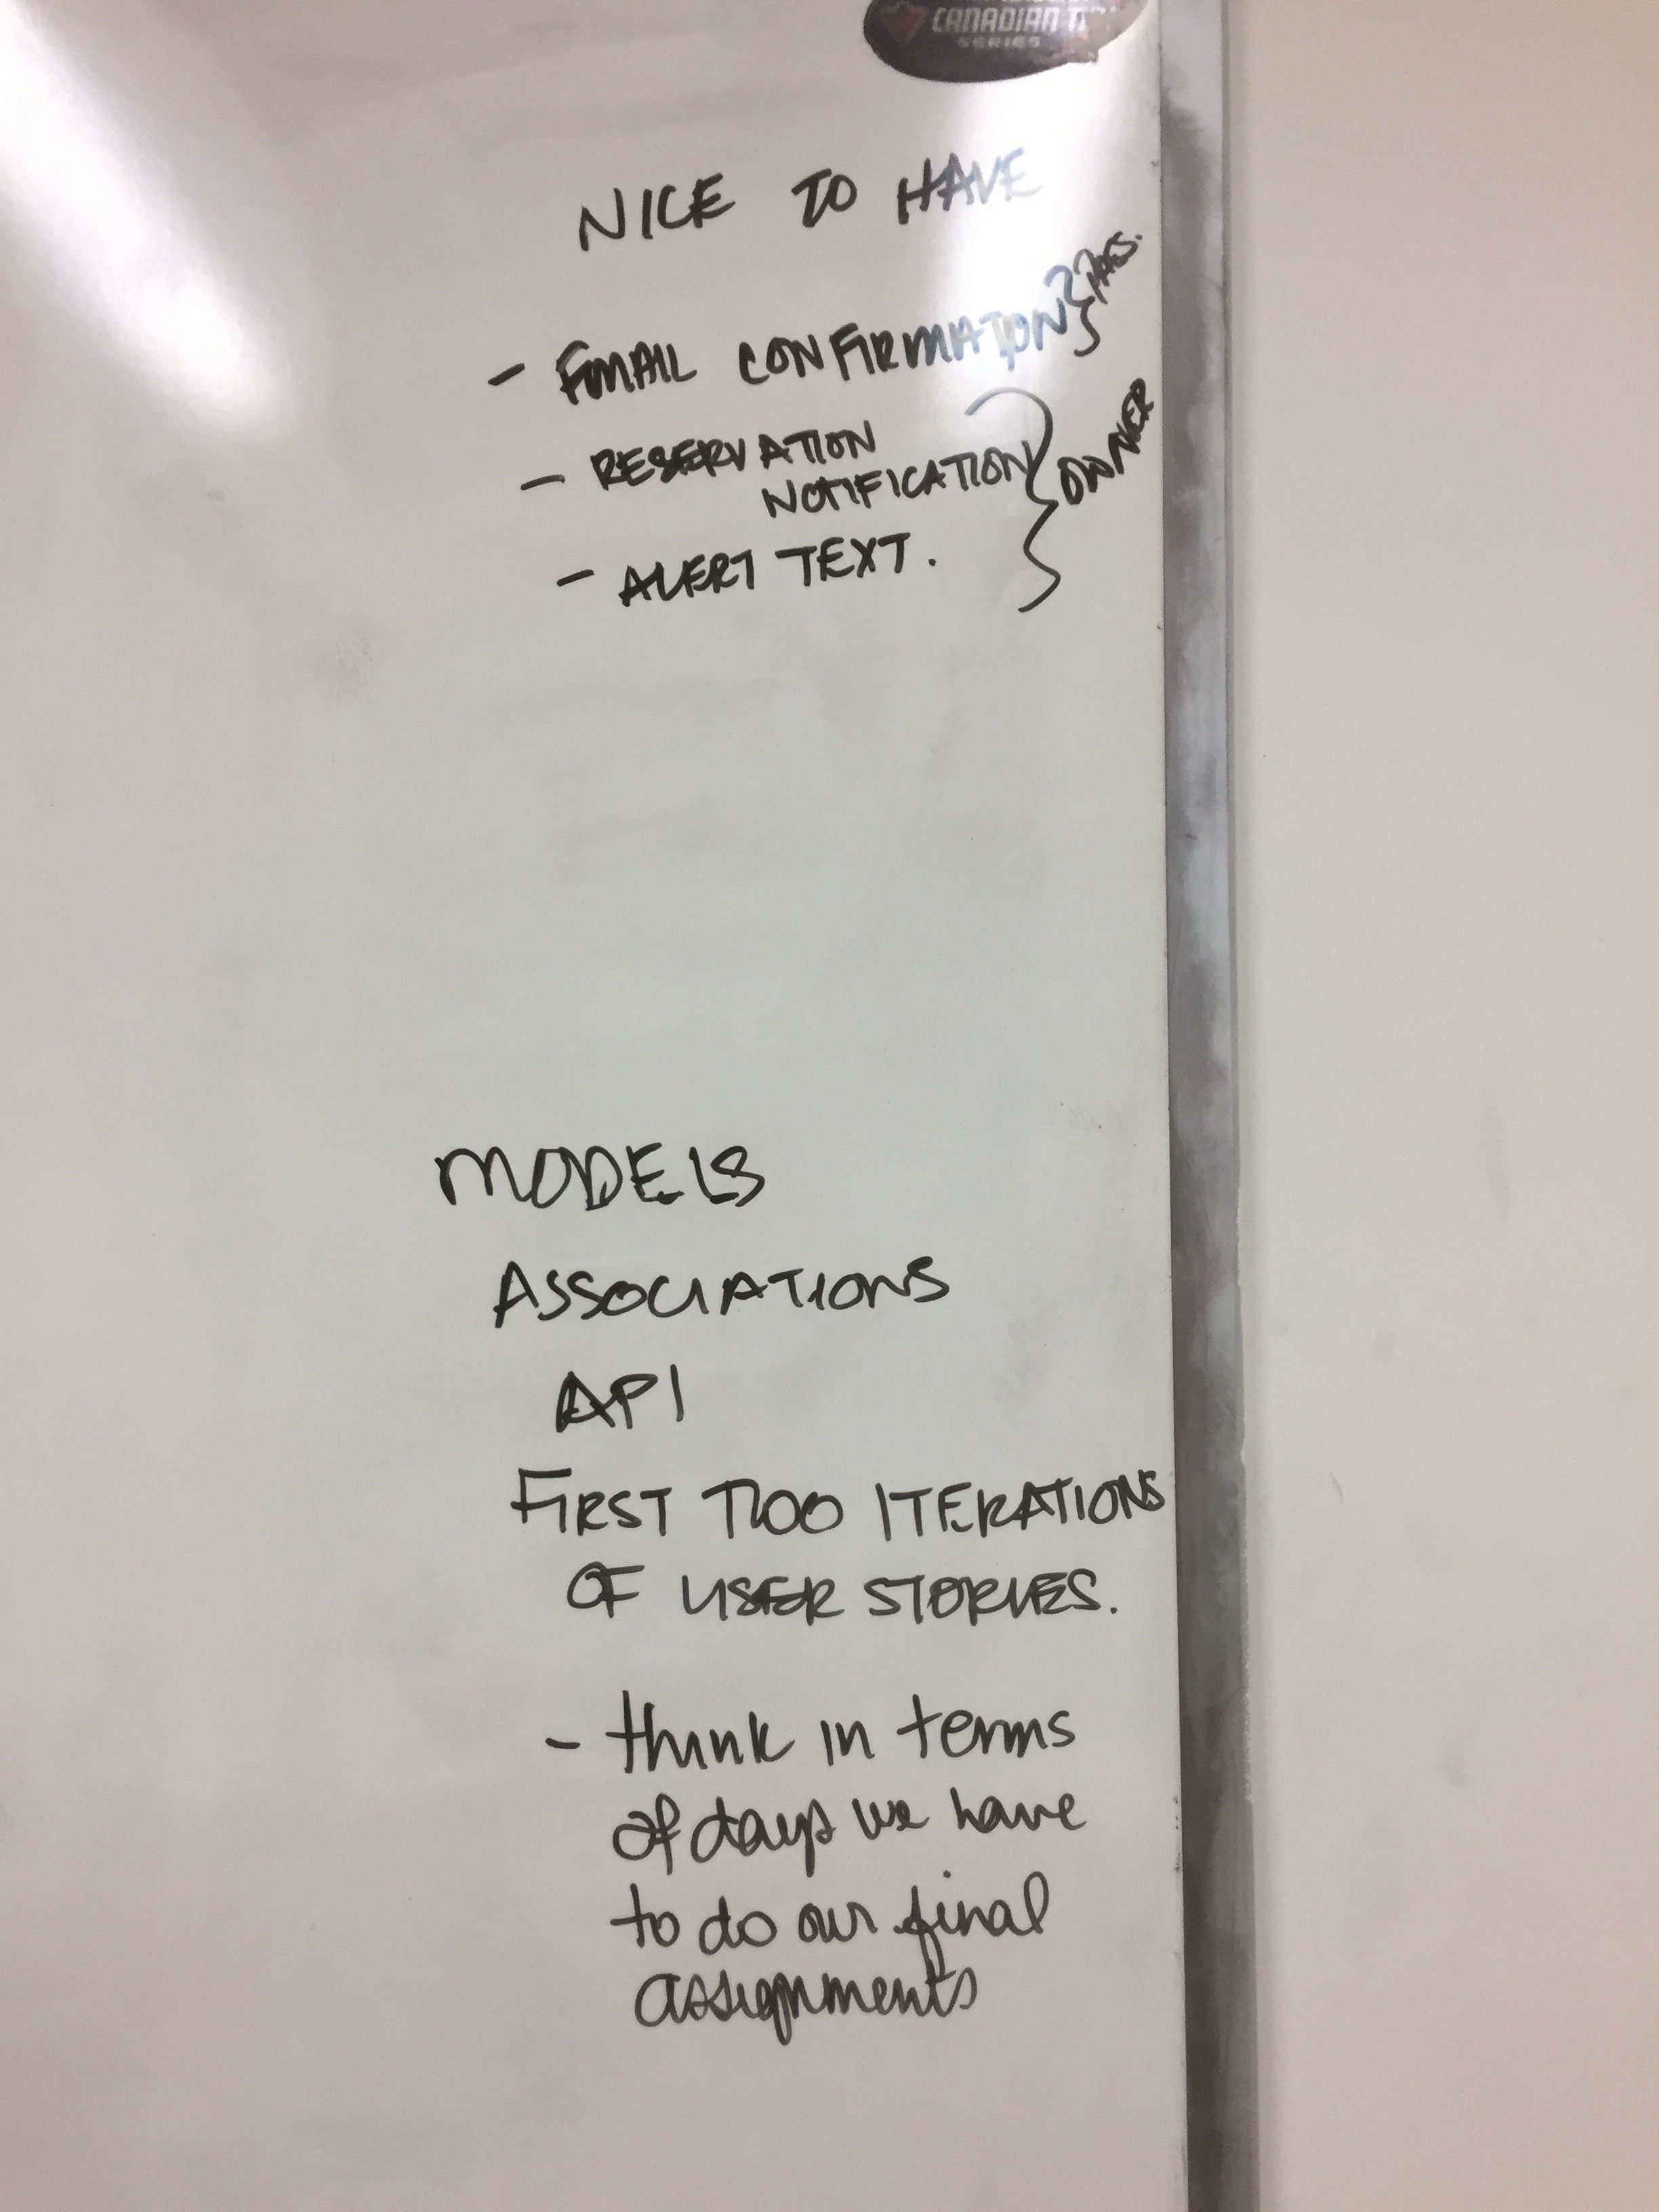 CANADIAN
SERIES
NICE TO HAVE
- EMAIL CONFIRMATION
- RESERVATION
NOTIFICATION
OWNER
- ALERT TEXT.
MODELS
ASSOCIATIONS
API
FIRST TWO ITERATIONS
OF USER STORIES.
- think in terms
of days we have
to do our final
assignments